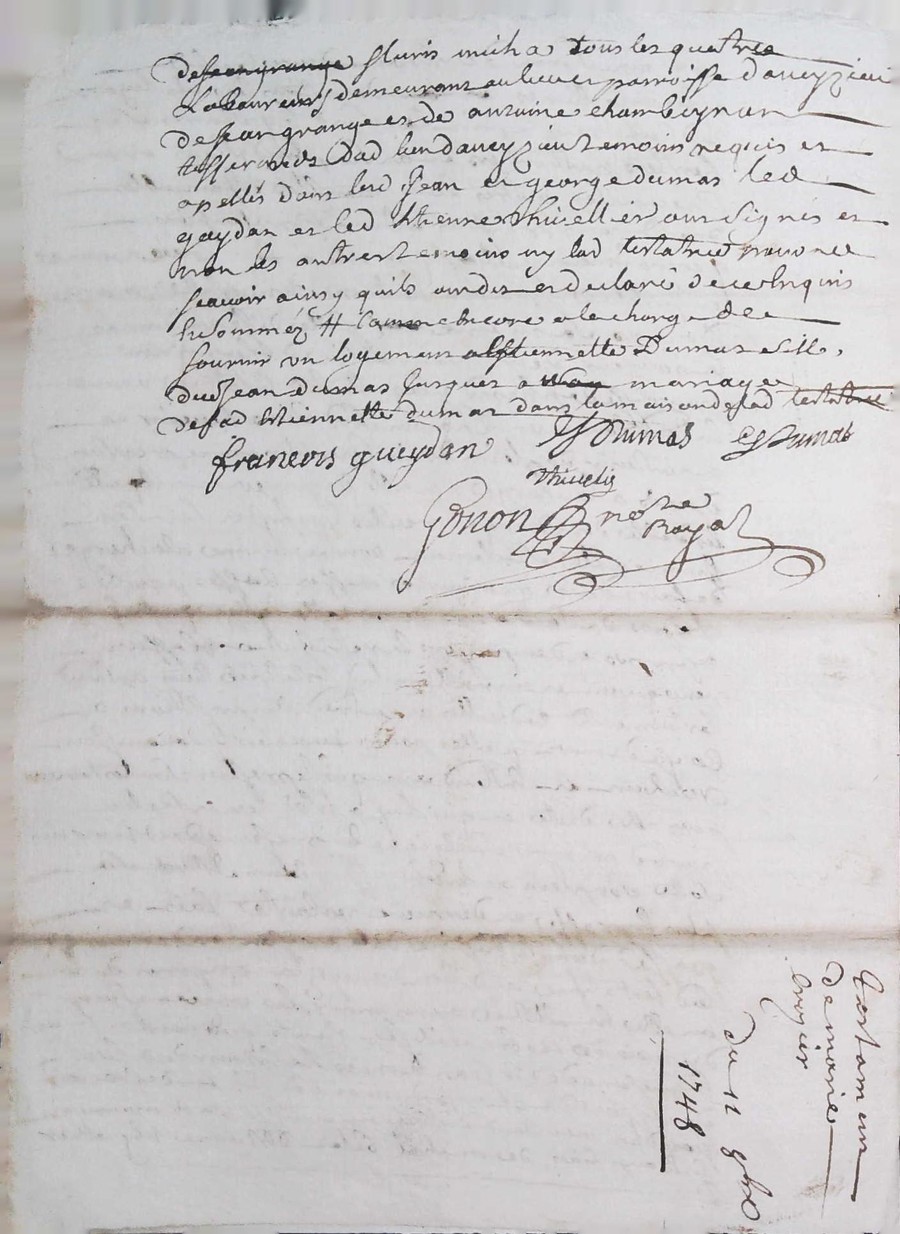 de jean grange fluris micha tous les quatre
Laboureurs demeurant au parroisse d'aveyzieu
de jean grange et de antoine chambeyron
tisserands dud lieu d'aveyzieu temoins requis et
apellés dont led jean et george dumas led
gaydan et led Etienne thivellier ont signés et
non les autres temoins ny lad testatrice
scavoir ainsy quils ont dit et declaré de ce Enquis
et sommés # comme encore a la charge de
fournir un logement a Estiennette Dumas fille
dud jean Dumas jusques a son mariage
de lad Etiennette dumas dans la maison de lad testatrice
francois gueydan JDumas GDumas
thivelie
Gonon nore
Royal
testament
de marie
du 12 9bre
1748